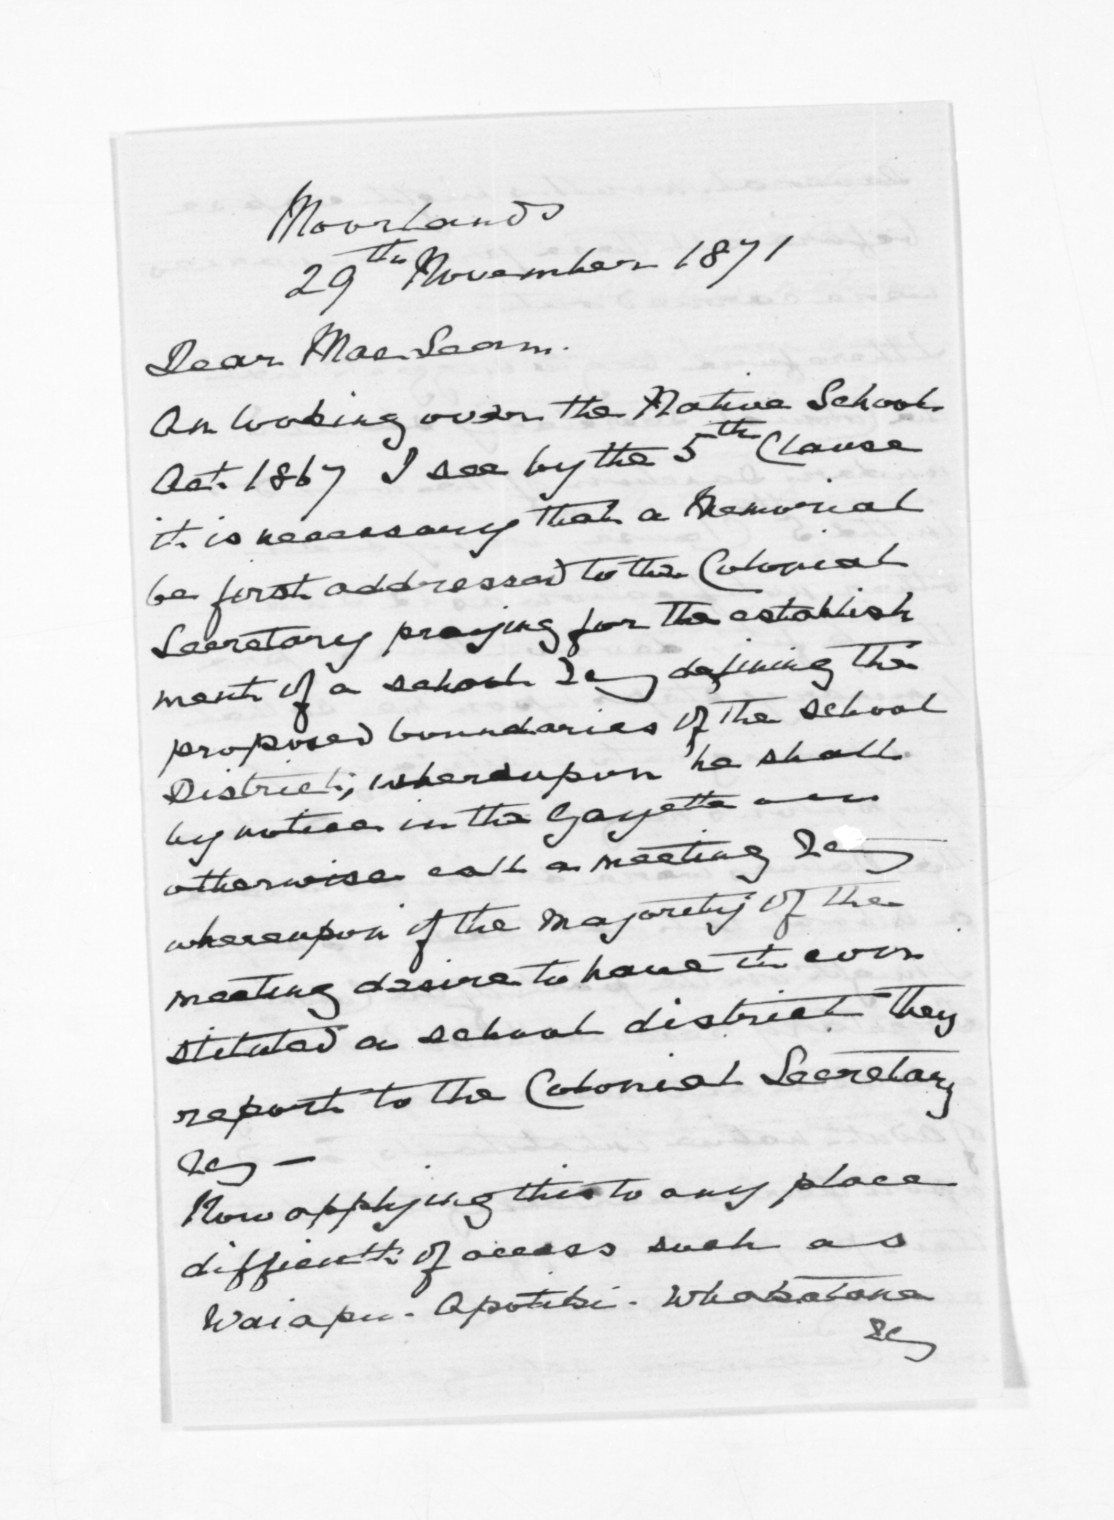 Moorlands
29th November 1871
Dear MacLean.
On looking over the Native School
Act. 1867 I see by the 5th Clause
it is necessary that a Memorial
be first addressed to the Colonial
Secretary praying for the establish
ment of a school &cy defining the
proposed boundaries of the school
District; whereupon he shall
by notice in the Gazette or
otherwise call a meeting &cy
whereupon if the Majority of the
meeting desire to have it con
stituted a school district they
report to the Colonial Secretary
&cy —
Now applying this to any place
difficult of access such as
Waiapu - Opotiki - Whakatane
&cy